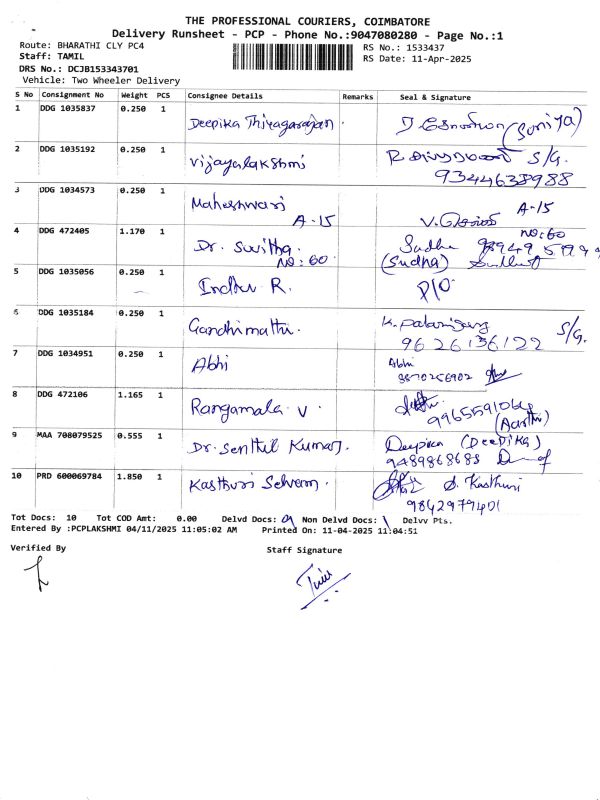 THE PROFESSIONAL COURIERS, COIMBATORE
Delivery Runsheet - PCP - Phone No.:9047080280 - Page No.:1
Route: BHARATHI CLY PC4 RS No.: 1533437
Staff: TAMIL RS Date: 11-Apr-2025
DRS No.: DCJB153343701
Vehicle: Two Wheeler Delivery
S No Consignment No Weight PCS Consignee Details Remarks Seal & Signature
1 DDG 1035837 0.250 1 Deepika Thiyagarajan. (Soniya)
2 DDG 1035192 0.250 1 Vijayalakshmi S/G.
9344638988
3 DDG 1034573 0.250 1 Maheshwari A-15
A-15
4 DDG 472405 1.170 1 Dr. Suvitha. Sudha NO:60
NO:60 (Sudha)
5 DDG 1035056 0.250 1 Indhu R. P/O
6 DDG 1035184 0.250 1 Gandhimathi. S/G.
9626136122
7 DDG 1034951 0.250 1 Abhi Abhi
8 DDG 472106 1.165 1 Rangamala V. (Aarthi)
9 MAA 708079525 0.555 1 Dr. Senthil Kumar. Deepika (DeePIKa)
9489868688
10 PRD 600069784 1.850 1 Kasthuri Selvam. S. Kasthuri
9842979401
Tot Docs: 10 Tot COD Amt: 0.00 Delvd Docs: 09 Non Delvd Docs: 1 Delvv Pts.
Entered By :PCPLAKSHMI 04/11/2025 11:05:02 AM Printed On: 11-04-2025 11:04:51
Verified By Staff Signature